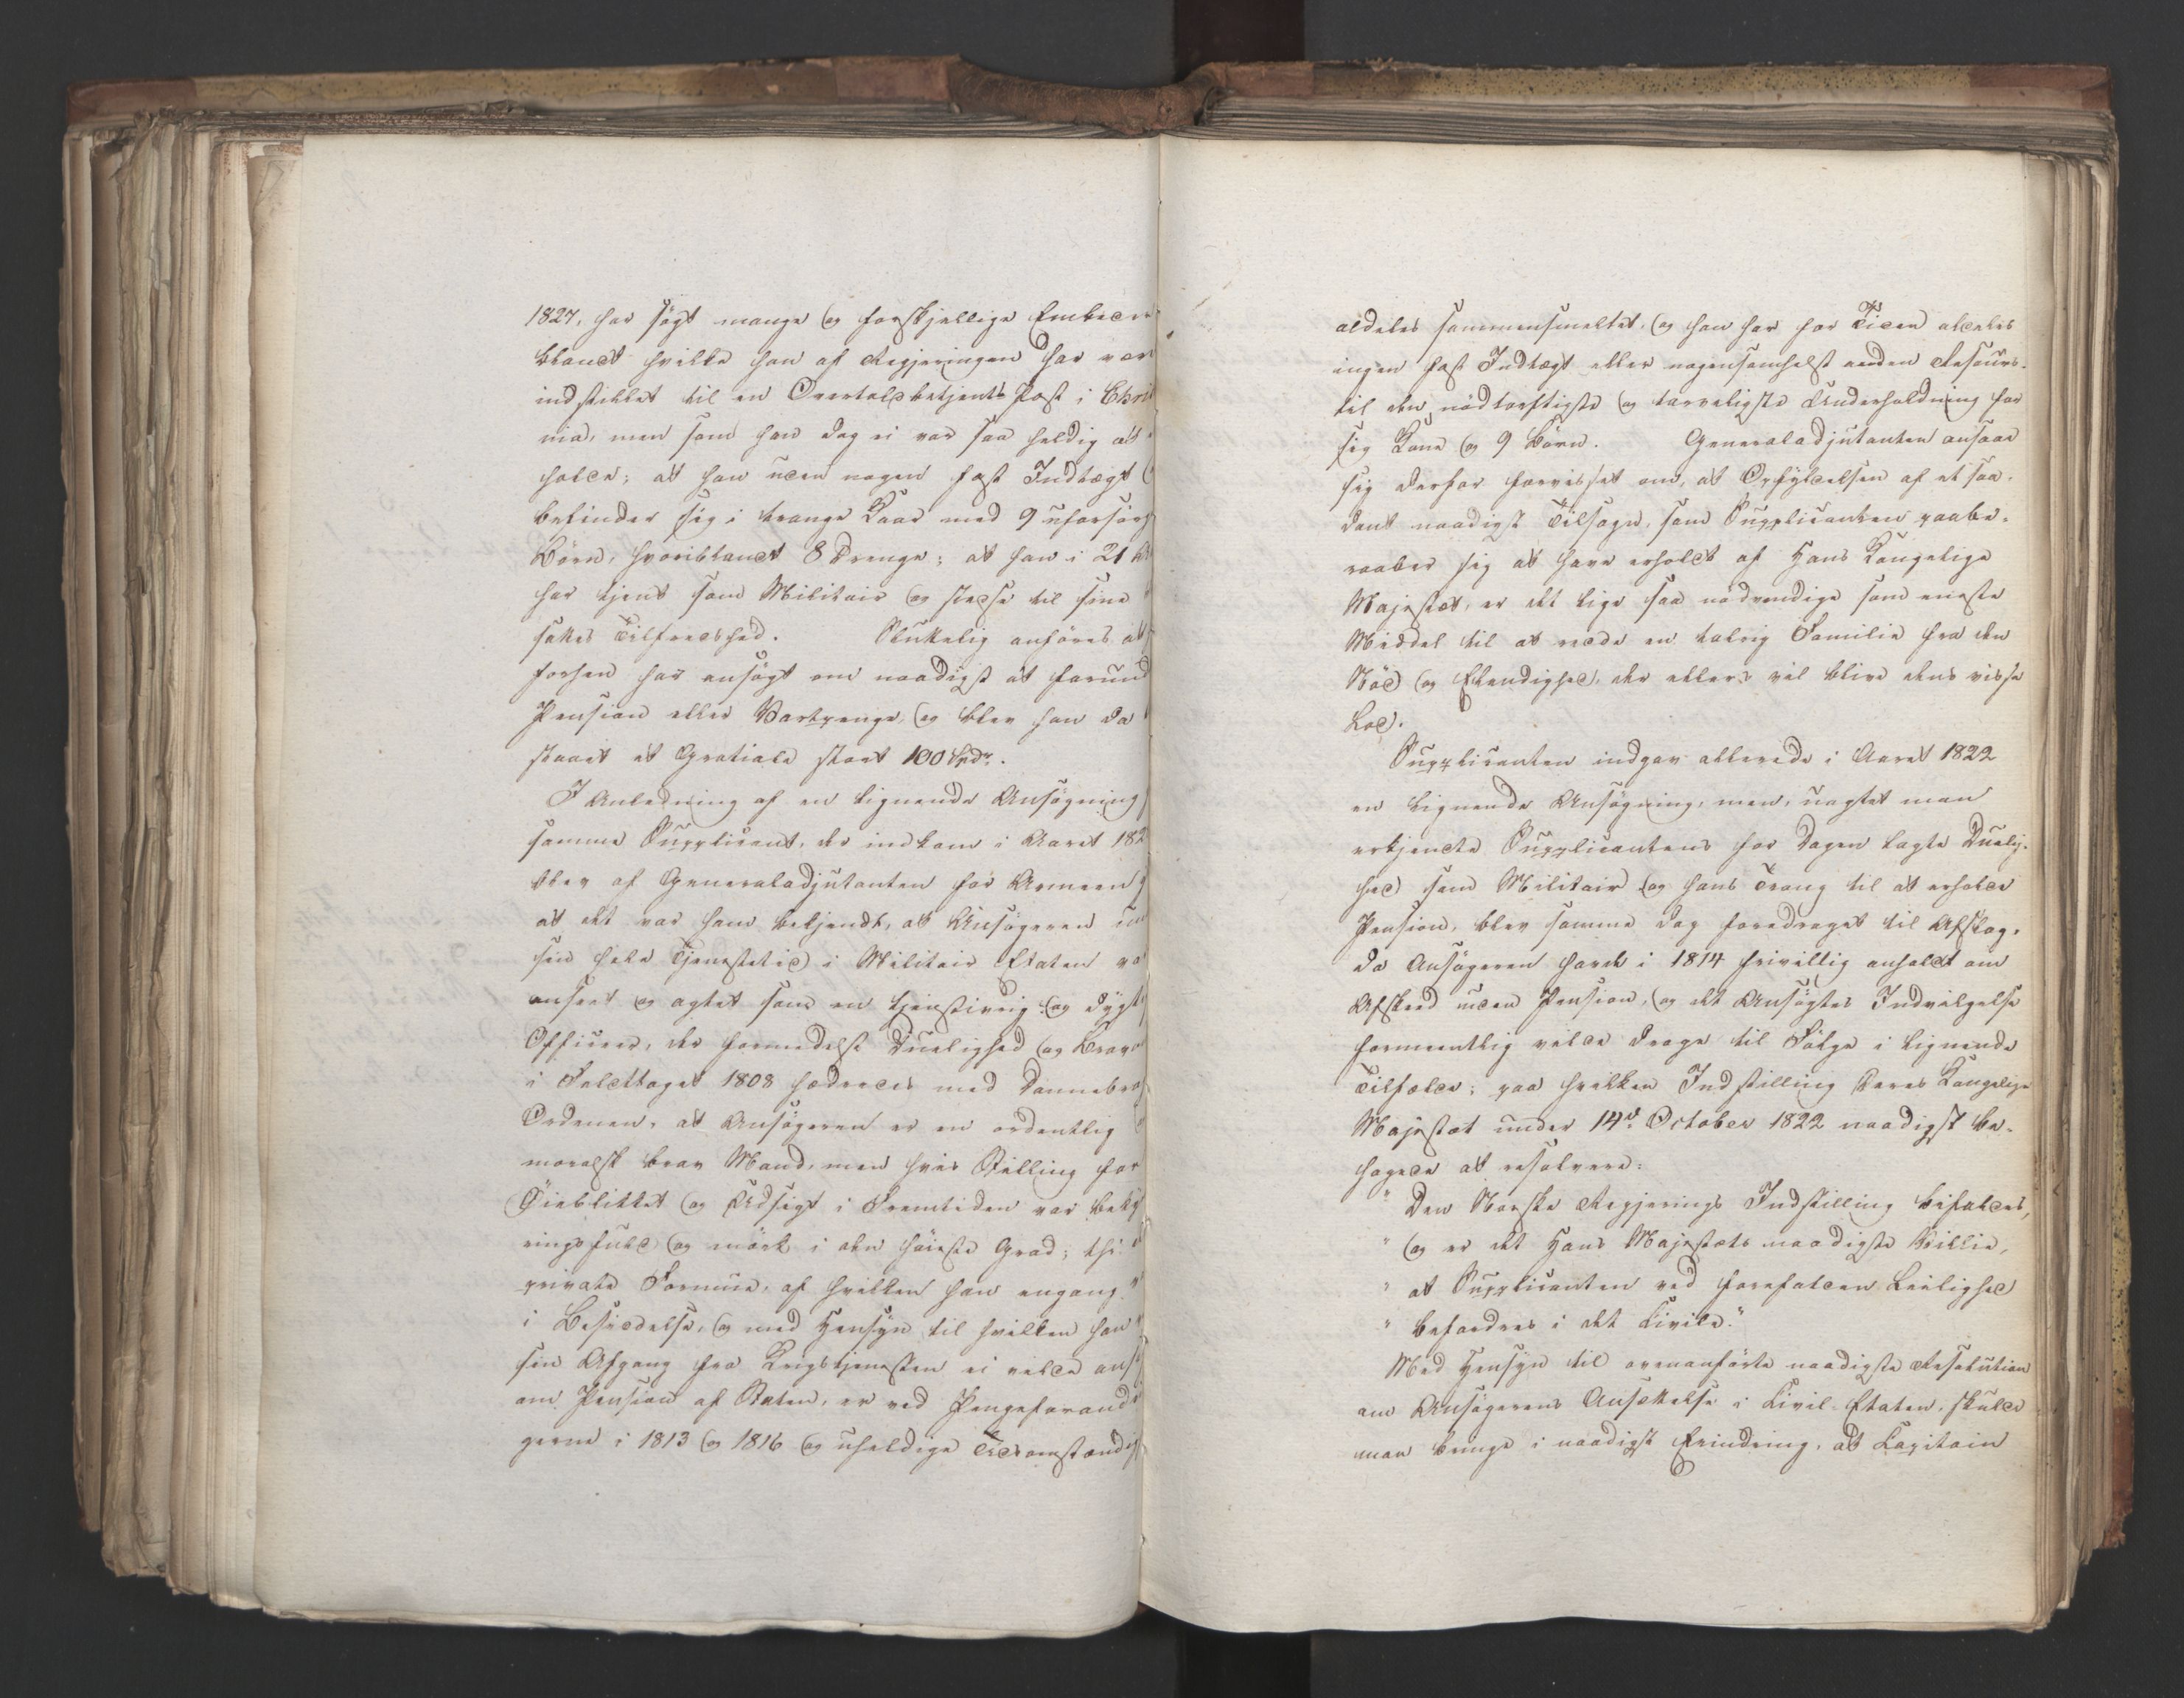 1827, har søgt mange og forskjellige Embeder
blandt hvilke han af Regjeringen har vær
indstillet til en Overtoldbetjents Post i Chri
nia, men som han dog ei var saa heldig at
holde; at han uden nogen fast Indtægt
befinder sig i trange Kaar med 9 uforsørg
Børn, hvoriblandt 8 Drenge; at han i 21
har tjent som Militair og stedse til sine
sattes Tilfredshed. Slutkelig anføres at
forhen har ansøgt om naadigst at forund
Pension eller Vartpenge, og blev han da
staaet et Gratiale stort 100 Spdr.
I Anledning af en lignende Ansøgning
samme Supplicant, der indkom i Aaret 182
blev af Generaladjutanten for Armeen
at det var ham bekjendt, at Ansøgeren
sin hele Tjenestetid i Militair Etaten va
anseet og agtet som en tjenstivrig og dygt
Officeer, der formedelst Duelighed og Brav
i Felttoget 1808 hædredes med Dannebro
Ordenen, at Ansøgeren er en ordentlig
moralsk brav Mand, men hvis Stilling for
Øieblikket og Udsigt i Fremtiden var beky
ringsfuld og mørk i den høieste Grad; thi
private Formue, af hvilken han engang
i Besiddelse, og med Hensyn til hvilken han
sin Afgang fra Krigstjenesten ei vilde ans
om Pension af Staten, er ved Pengeforand
gerne i 1813 og 1816 og uheldige Tidsomstændig
aldeles sammensmeltet, og han har for Tiden aldeles
ingen fast Indtægt eller nogensomhelst anden Resourc
til den nødtørftigste og tarveligste Underholdning for
sig Kone og 9 Børn. Generaladjutanten ansaae
sig derfor forvisset om, at Opfyldelsen af et saa-
dant naadigst Tilsagn, som Supplicanten paabe-
raaber sig at have erholdt af Hans Kongelige
Majestæt, er det lige saa nødvendige som eneste
Middel til at redde en talrig Familie fra den
Nød og Elendighed, der ellers vil blive dens visse
Lod.
Supplicanten indgav allerede i Aaret 1822
en lignende Ansøgning, men, uagtet man
erkjendte Supplicantens for Dagen lagte Duelig-
hed som Militair og hans Trang til at erholde
Pension, blev samme dog foredraget til Afslag,
da Ansøgeren havde i 1814 frivillig anholdt om
Afskeed uden Pension, og det Ansøgtes Indvilgelse
formeentlig vilde drage til Følge i lignende
Tilfælde; paa hvilken Indstilling Deres Kongelige
Majestæt under 14d October 1822 naadigst be-
hagede at resolvere:
" Den Norske Regjerings Indstilling bifaldes,
" og er det Hans Majestæts naadigste Villie,
" at Supplicanten ved forefalden Leilighed
" befordres i det Civile."
Med Hensyn til ovenanførte naadigste Resolution
om Ansøgerens Ansættelse i Civil-Etaten, skulde
man bringe i naadigst Erindring, at Capitain